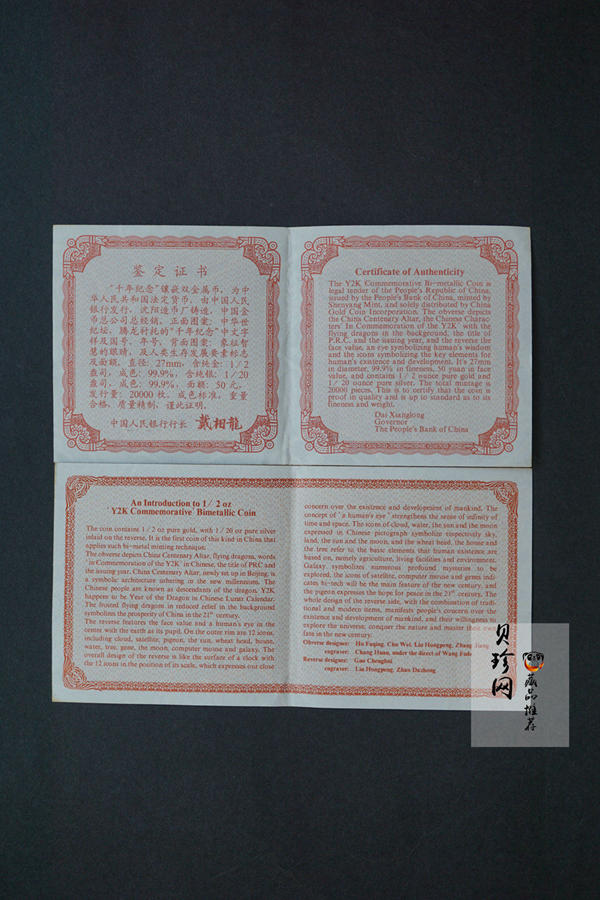 鉴定证书
"千年纪念"镶嵌双金属币，为中
华人民共和国法定货币，由中国人民
银行发行，沈阳造币厂铸造，中国金
币总公司总经销。正面图案：中华世
纪坛、腾龙衬托的"千年纪念"中文字
样及国号、年号。背面图案：象征智
慧的眼睛，及人类生存发展要素标志
及面额。直径：27mm，含纯金：1/2
盎司，成色：99.9%，含纯银：1/20
盎司，成色：99.9%，面额：50元，
发行量：20000枚。成色标准，重量
合格，质量精制，谨此证明。
中国人民银行行长 戴相龍
Certificate of Authenticity
The Y2K Commemorative Bi-metallic Coin is
legal tender of the People's Republic of China,
issued by the People's Bank of China, minted by
Shenyang Mint, and solely distributed by China
Gold Coin Incorporation. The obverse depicts
the China Centenary Altar, the Chinese Charac-
ters' In Commemoration of the Y2K' with the
flying dragons in the background, the title of
P.R.C. and the issuing year, and the reverse the
face value, an eye symbolizing human's wisdom
and the icons symbolizing the key elements for
human's existence and development. It's 27mm
in diameter, 99.9% in fineness, 50 yuan in face
value, and contains 1/2 ounce pure gold and
1/20 ounce pure silver. The total mintage is
20000 pieces. This is to certify that the coin is
proof in quality and is up to standard as to its
fineness and weight.
Dai Xianglong
Governor
The People's Bank of China
An Introduction to 1/2 oz
'Y2K Commemorative Bimetallic Coin
The coin contains 1/2 oz pure gold, with 1/20 oz pure silver
inlaid on the reverse. It is the first coin of this kind in China that
applies such bi-metal minting technique.
The obverse depicts China Centenary Altar, flying dragons, words
'in Commemoration of the Y2K' in Chinese, the title of PRC and
the issuing year. China Centenary Altar, newly set up in Beijing, is
a symbolic architecture ushering in the new millennium. The
Chinese people are known as descendants of the dragon. Y2K
happens to be Year of the Dragon in Chinese Lunar Calendar.
The frosted flying dragon in reduced relief in the background
symbolizes the prosperity of China in the 21st century.
The reverse features the face value and a human's eye in the
center with the earth as its pupil. On the outer rim are 12 icons,
including cloud, satellite, pigeon, the sun, wheat head, house,
water, tree, gene, the moon, computer mouse and galaxy. The
overall design of the reverse is like the surface of a clock with
the 12 icons in the position of its scale, which expresses our close
concern over the existence and development of mankind. The
concept of 'a human's eye' strengthens the sense of infinity of
time and space. The icons of cloud, water, the sun and the moon
expressed in Chinese pictograph symbolize respectively sky,
land, the sun and the moon, and the wheat head, the house and
the tree refer to the basic elements that human existence are
based on, namely agriculture, living facilities and environment.
Galaxy symbolizes numerous profound mysteries to be
explored, the icons of satellite, computer mouse and genes indi-
cates hi-tech will be the main feature of the new century, and
the pigeon expresses the hope for peace in the 21st century. The
whole design of the reverse side, with the combination of tradi-
tional and modern items, manifests people's concern over the
existence and development of mankind, and their willingness to
explore the universe, conquer the nature and master their own
fate in the new century.
Obverse designer: Hu Fuqing, Chu Wei, Liu Hongpeng, Zhang
engraver: Chang Huan, under the direct of Wang Fude
Reverse designer: Gao Chenglai
engraver: Liu Hongpeng, Zhao Dazhong
贝珍网
藏品推荐